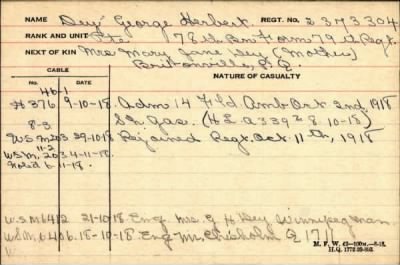 NAME Dey George Herbert. REGT. NO. 2373304
RANK AND UNIT Pte 78th Bn Form 79th Regt.
NEXT OF KIN Mrs Mary Jane Dey (Mother)
Britonville, P.Q.
CABLE NATURE OF CASUALTY
No. DATE
46-1
H376 9-10-18. Adm 14 Fld. Amb Oct 2nd, 1918
8-3 Sh. Gas. (HL A3392 8-10-18)
W.S.M. 203 29-10-18 Rejoined Regt. Oct 11th, 1918
11-2
W.S.M. 203 4-11-18.
Noted 6-11-18.
W.S.M 6412 21-10-18 Enq Mrs. G H Dey Winnipeg Man
W.S.M. 6406 18-10-18. Enq Mr. Chisholm Q 1711
M. F. W. 42-100M.-8-18.
H.Q. 1772-39-893.